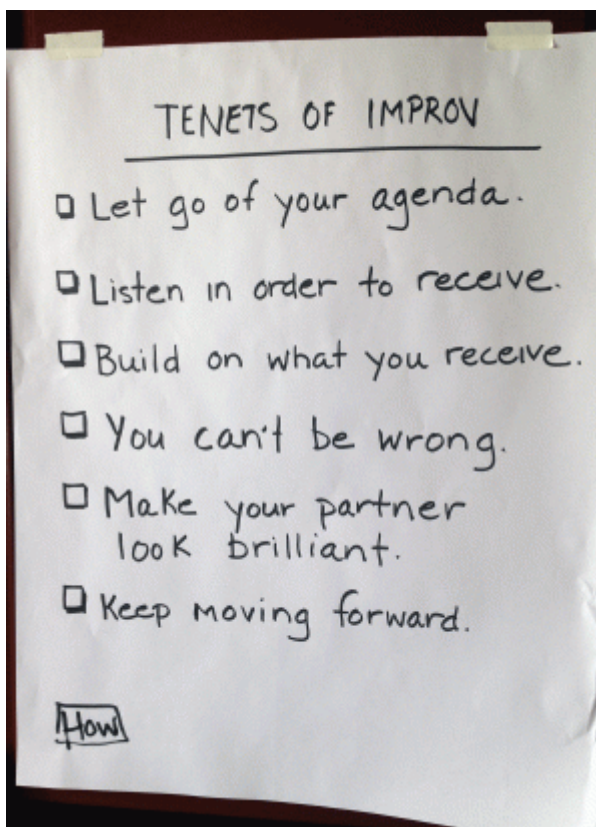 TENETS OF IMPROV
Let go of your agenda.
Listen in order to receive.
Build on what you receive.
You can't be wrong.
Make your partner
look brilliant.
Keep moving forward.
How